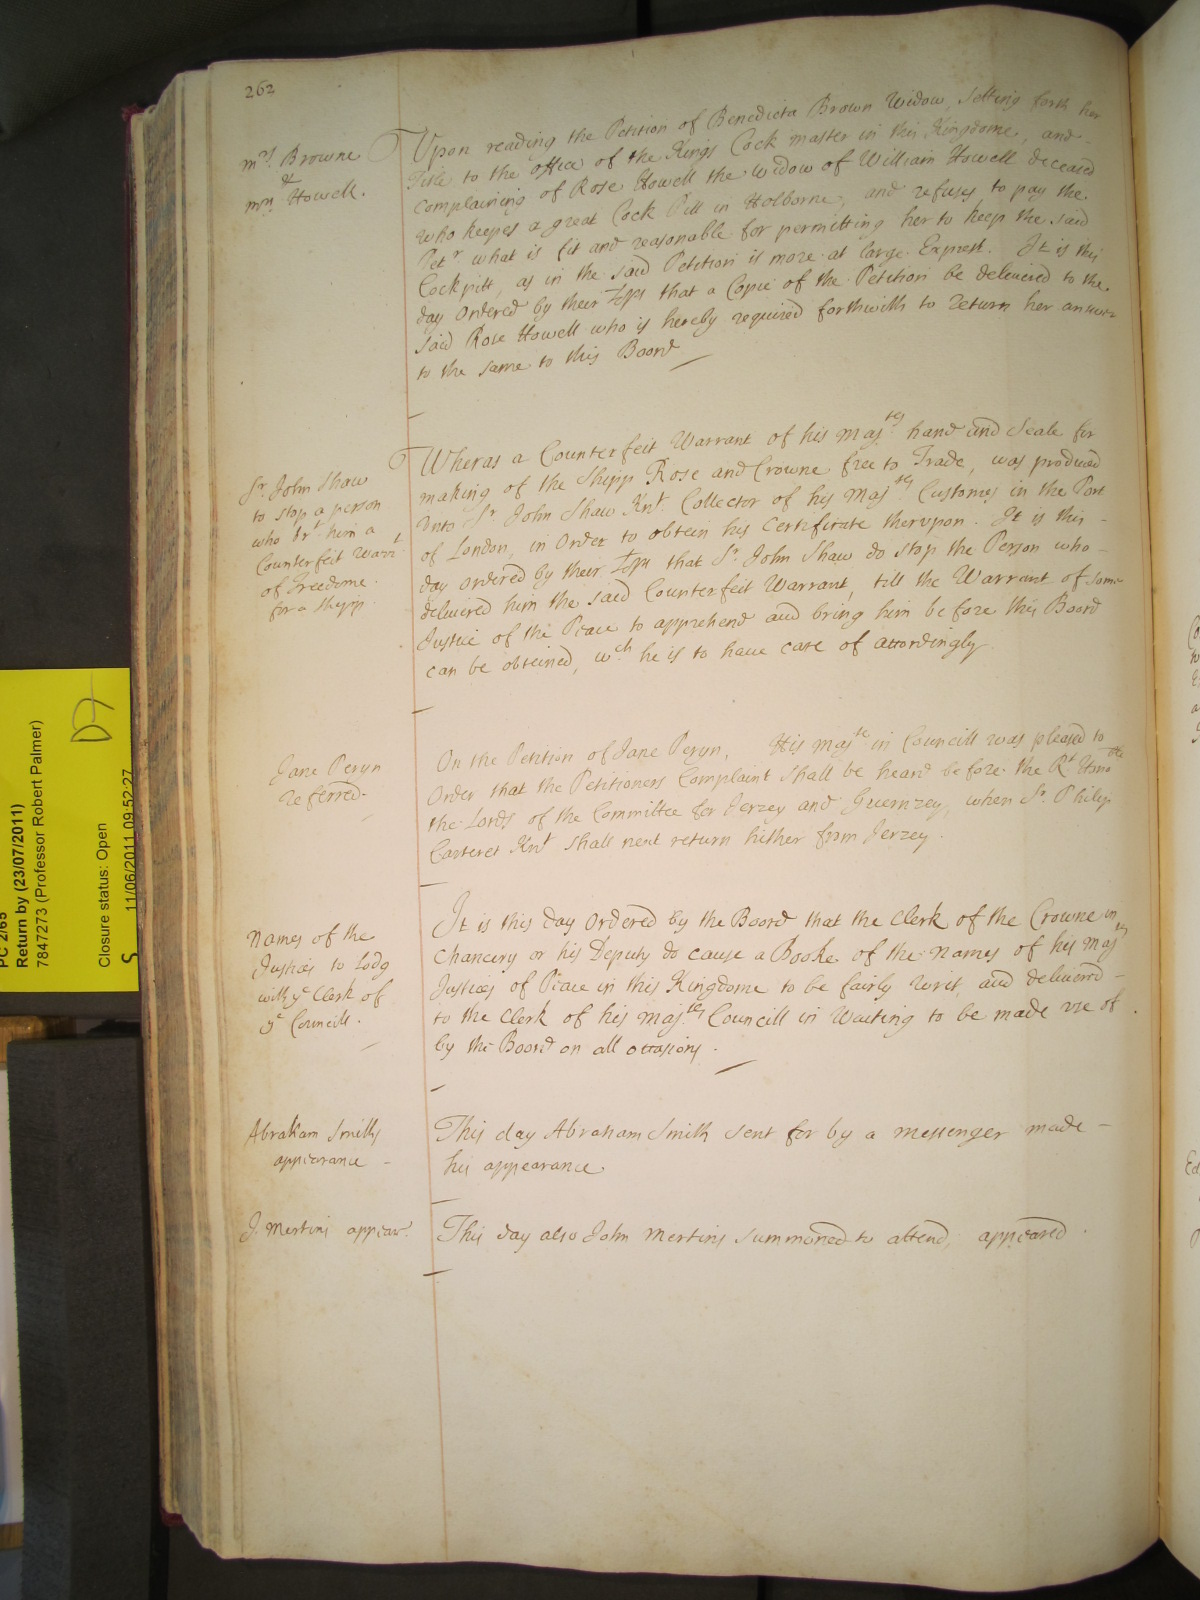 262
Mrs. Browne
&
Mrs. Howell.
Upon reading the Petition of Benedicta Brown Widow, setting forth her
Title to the office of the Kings Cock master in this Kingdome, and
complaining of Rose Howell the widow of William Howell deceased
who keepes a great Cock Pitt in Holborne, and refuses to pay the
Petr. what is fit and reasonable for permitting her to keep the said
Cockpitt, as in the said Petition is more at large Exprest. It is this
day Ordered by their Lops that a Copie of the Petition be delivered to the
said Rose Howell who is hereby required forthwith to return her answer
to the same to this Board
Sr. John Shaw
to stop a person
who brt him a
Counterfeit Warrt
of Freedome
for a Shipp
Wheras a Counterfeit Warrant of his Majties hand and Seale for
making of the Shipp Rose and Crowne free to Trade, was produced
unto Sr. John Shaw Knt. Collector of his Majties Customes in the Port
of London, in Order to obtein his Certificate therupon. It is this -
day ordered by their Lops that Sr. John Shaw do stop the Person who -
delivered him the said Counterfeit Warrant, till the Warrant of some
Justice of the Peace to apprehend and bring him before this Board
can be obteined, wch he is to have care of accordingly.
Jane Peryn
referred.
On the Petition of Jane Peryn, His Majtie in Councill was pleased to
Order that the Petitioners Complaint shall be heard before the Rt. Honoble
the Lords of the Committee for Jerzey and Guernzey, when Sr. Philip
Carteret Knt shall next return hither from Jerzey.
Names of the
Justices to Lodg
with ye Clerk of
ye Councill.
It is this day Ordered by the Board that the Clerk of the Crowne in
Chancery or his Deputy do cause a Booke of the Names of his Majties
Justices of Peace in this Kingdome to be fairly writ, and delivered -
to the Clerk of his Majties Councill in Waiting to be made vse of
by the Board on all occasions.
Abraham Smiths
appearance -
This day Abraham Smith sent for by a messenger made -
his appearance.
J. Mertins appear.
This day also John Mertins summoned to attend, appeared.
PC 2/65
Return by (23/07/2011)
7847273 (Professor Robert Palmer)
D7
Closure status: Open
S 11/06/2011 09:52:27